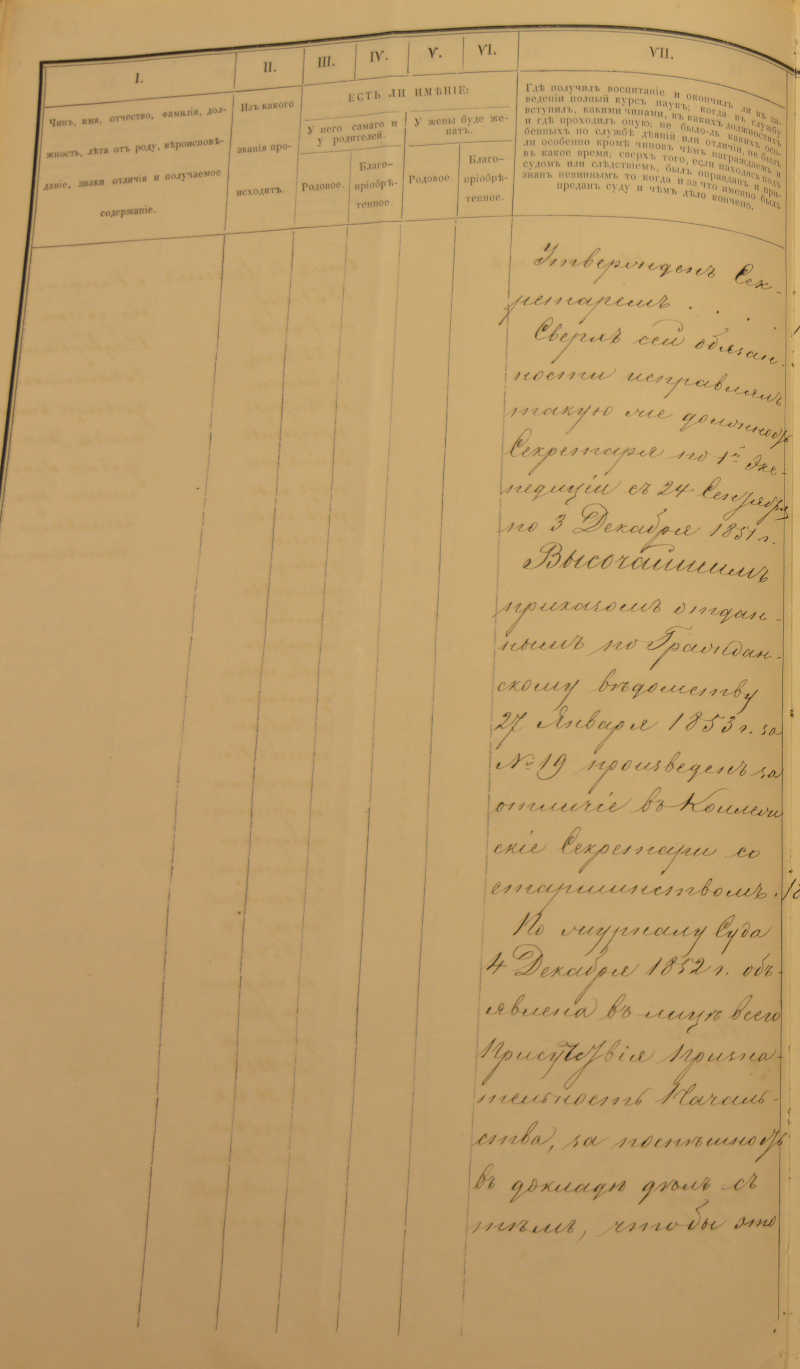 I.
II.
III.
IV.
V.
VI.
VII.
Чинъ, имя, отчество, фамилія, дол-
жность, лѣта отъ роду, вѣроисповѣ-
даніе, знаки отличія и получаемое
содержаніе.
Изъ какого
званія про-
исходитъ.
ЕСТЬ ЛИ ИМѢНІЕ:
У него самаго и
у родителей.
У жены буде же-
натъ.
Родовое.
Благо-
пріобрѣ-
тенное.
Родовое
Благо-
пріобрѣ-
тенное.
Гдѣ получилъ воспитаніе и окончилъ ли въ за-
веденіи полный курсъ наукъ; когда въ службу
вступилъ, какими чинами, въ какихъ должностяхъ
и гдѣ проходилъ оную; не было-ль какихъ осо-
бенныхъ по службѣ дѣяній или отличій, не былъ
ли особенно кромѣ чиновъ чѣмъ награждаемъ и
въ какое время; сверхъ того, если находясь подъ
судомъ или слѣдствіемъ, былъ оправданъ и при-
знанъ невиннымъ то когда и за что именно былъ
преданъ суду и чѣмъ дѣло кончено.
Утвержденъ Сек-
ретаремъ . . .
Сверхъ сей обязан
ности исправлялъ
такую же должность
Секретаря по 1й Экс-
педиціи съ 24 Сентября
по 3 Декабря 1851 г.
Высочайшимъ
приказомъ отдан-
нымъ по Граждан-
скому вѣдомству
27 Января 1853 г. за
№ 19 произведенъ за
отличіе въ Коллеж
скіе Секретари со
старшинствомъ.
По журналу Суда
4 Декабря 1852 г. объ-
явлена въ лицѣ всего
Присутствія Призна-
тельность Началь-
ства, за поспѣшность
въ докладѣ дѣлъ съ
тѣмъ, что бы это